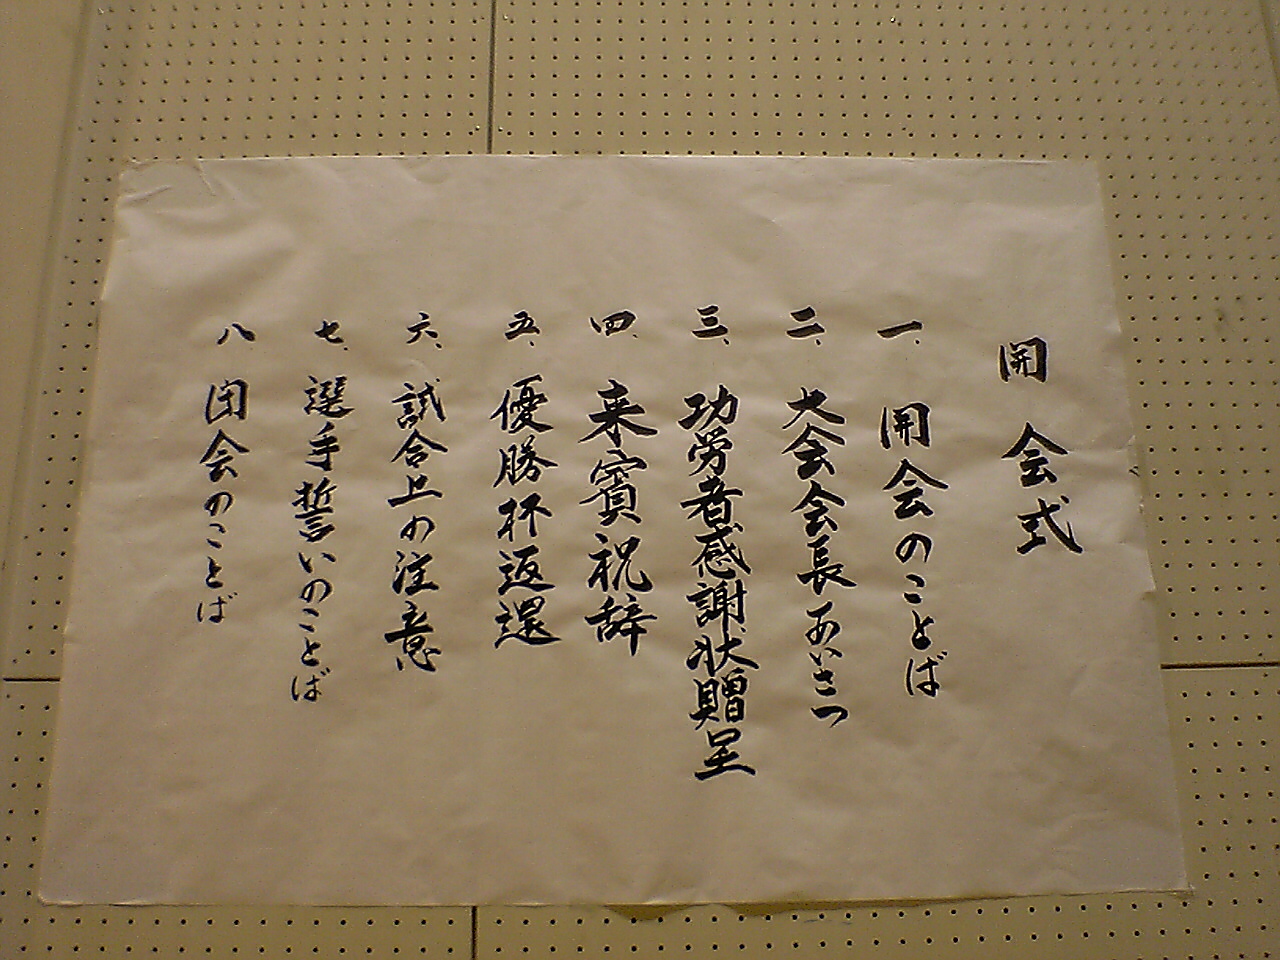 開会式
一、開会のことば
二、大会会長あいさつ
三、功労者感謝状贈呈
四、来賓祝辞
五、優勝杯返還
六、試合上の注意
七、選手誓いのことば
八、閉会のことば